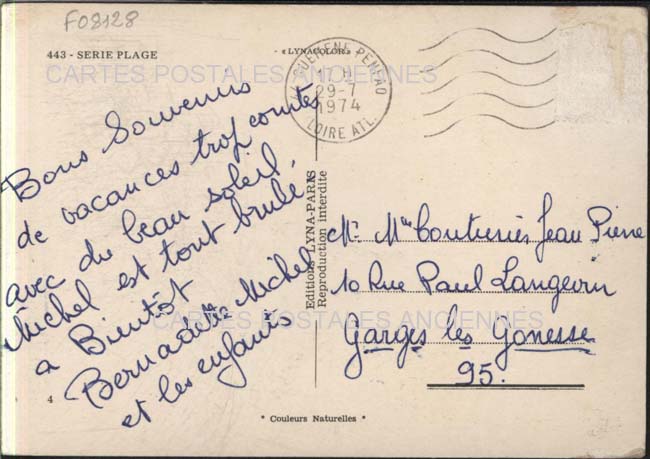 F08128
443 - SERIE PLAGE
- «LYNACOLOR» -
CARTES POSTALES ANCIENNES
44 GUEMENE PENFAO
17 H
29-7
1974
LOIRE ATL.
Bons Souvenirs
de vacances trop courtes
avec du beau soleil
Michel est tout brulé
a Bientôt
Bernadette Michel
et les enfants
4
Editions LYNA-PARIS
Reproduction interdite
Mr Mme Couturier Jean Pierre
10 Rue Paul Langevin
Garges les Gonesse
95.
CARTES POSTALES ANCIENNES
* Couleurs Naturelles *